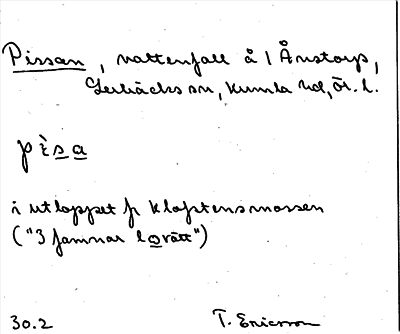 Pissan, vattenfall å 1 Ånstorp,
Lerbäcks sn, Kumla hd, Ör. l.
pìsa
i utloppet fr Kloftensmossen
("3 famnar lorätt")
30.2 T. Ericsson